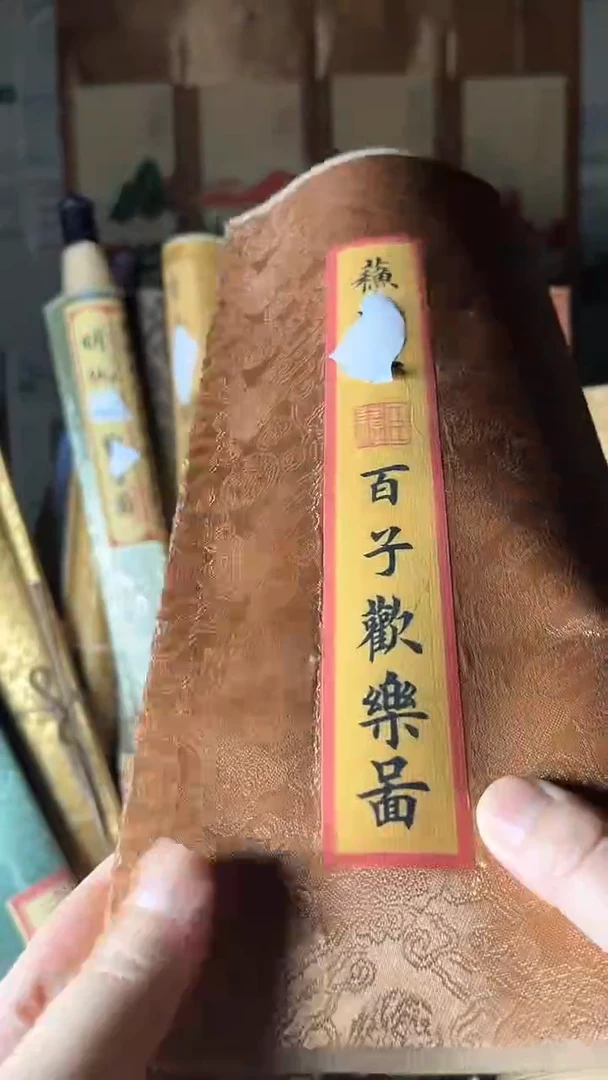 蘓
百子歡樂啚
明